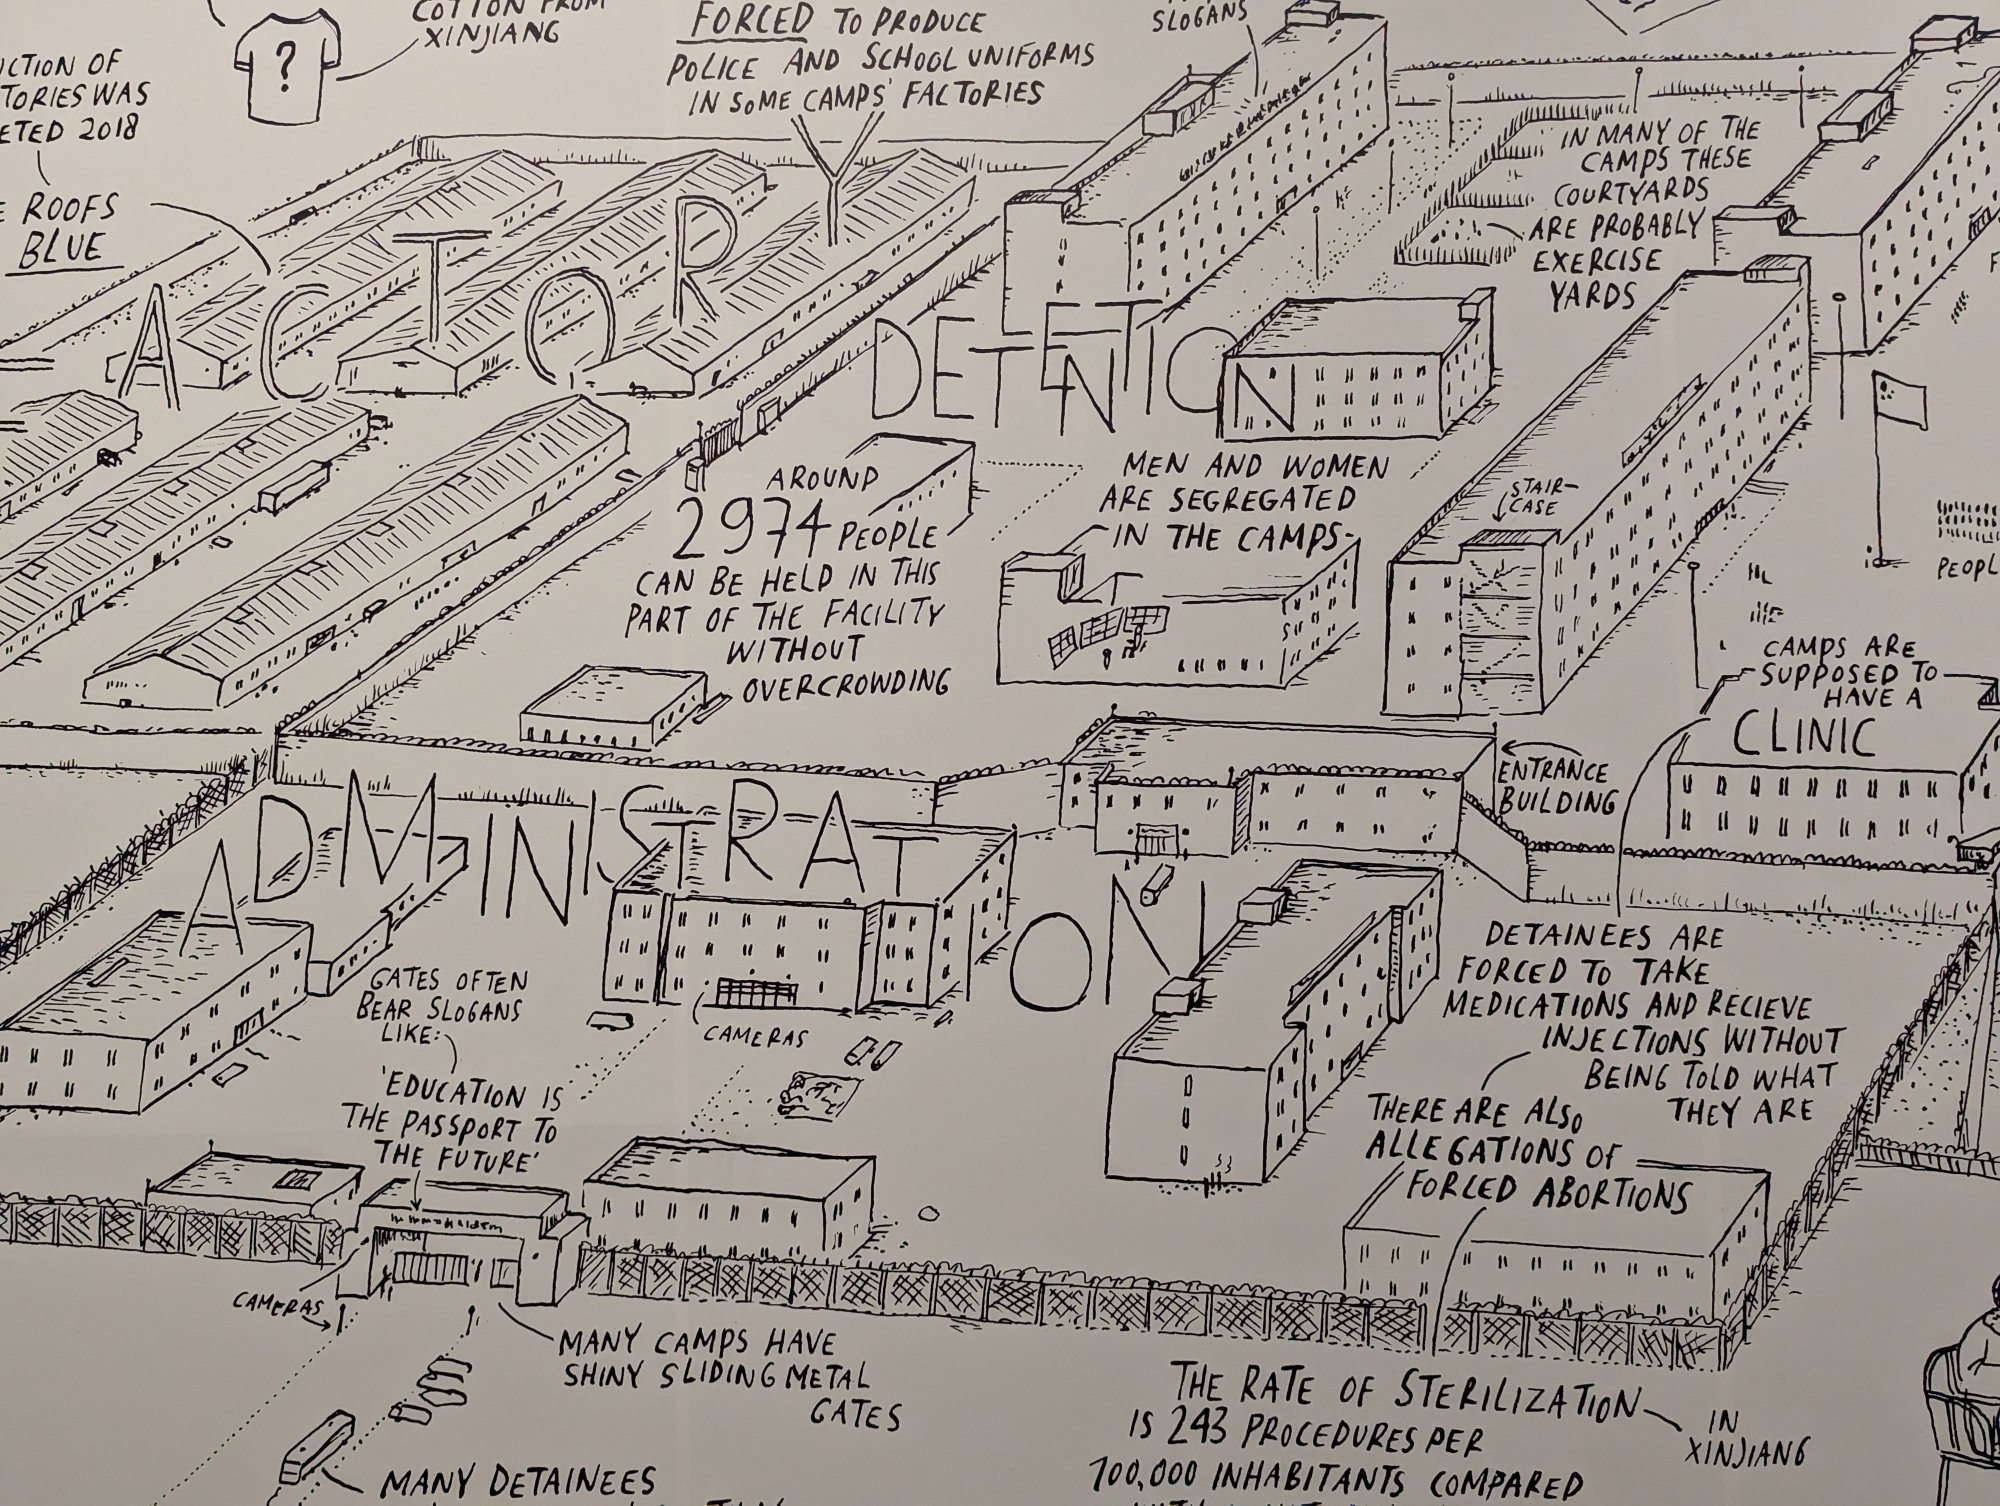 COTTON FROM
XINJIANG
?
FORCED TO PRODUCE
POLICE AND SCHOOL UNIFORMS
IN SOME CAMPS' FACTORIES
SLOGANS
WAS
2018
ROOFS
BLUE
IN MANY OF THE
CAMPS THESE
COURTYARDS
ARE PROBABLY
EXERCISE
YARDS
FACTORY
DETENTION
AROUND
2974 PEOPLE
CAN BE HELD IN THIS
PART OF THE FACILITY
WITHOUT
OVERCROWDING
MEN AND WOMEN
ARE SEGREGATED
IN THE CAMPS
STAIR-
CASE
CAMPS ARE
SUPPOSED TO
HAVE A
CLINIC
ENTRANCE
BUILDING
ADMINISTRATION
GATES OFTEN
BEAR SLOGANS
LIKE:
'EDUCATION IS
THE PASSPORT TO
THE FUTURE'
CAMERAS
DETAINEES ARE
FORCED TO TAKE
MEDICATIONS AND RECIEVE
INJECTIONS WITHOUT
BEING TOLD WHAT
THEY ARE
THERE ARE ALSO
ALLEGATIONS OF
FORCED ABORTIONS
CAMERAS
MANY CAMPS HAVE
SHINY SLIDING METAL
GATES
THE RATE OF STERILIZATION
IN
XINJIANG
IS 243 PROCEDURES PER
100,000 INHABITANTS COMPARED
MANY DETAINEES